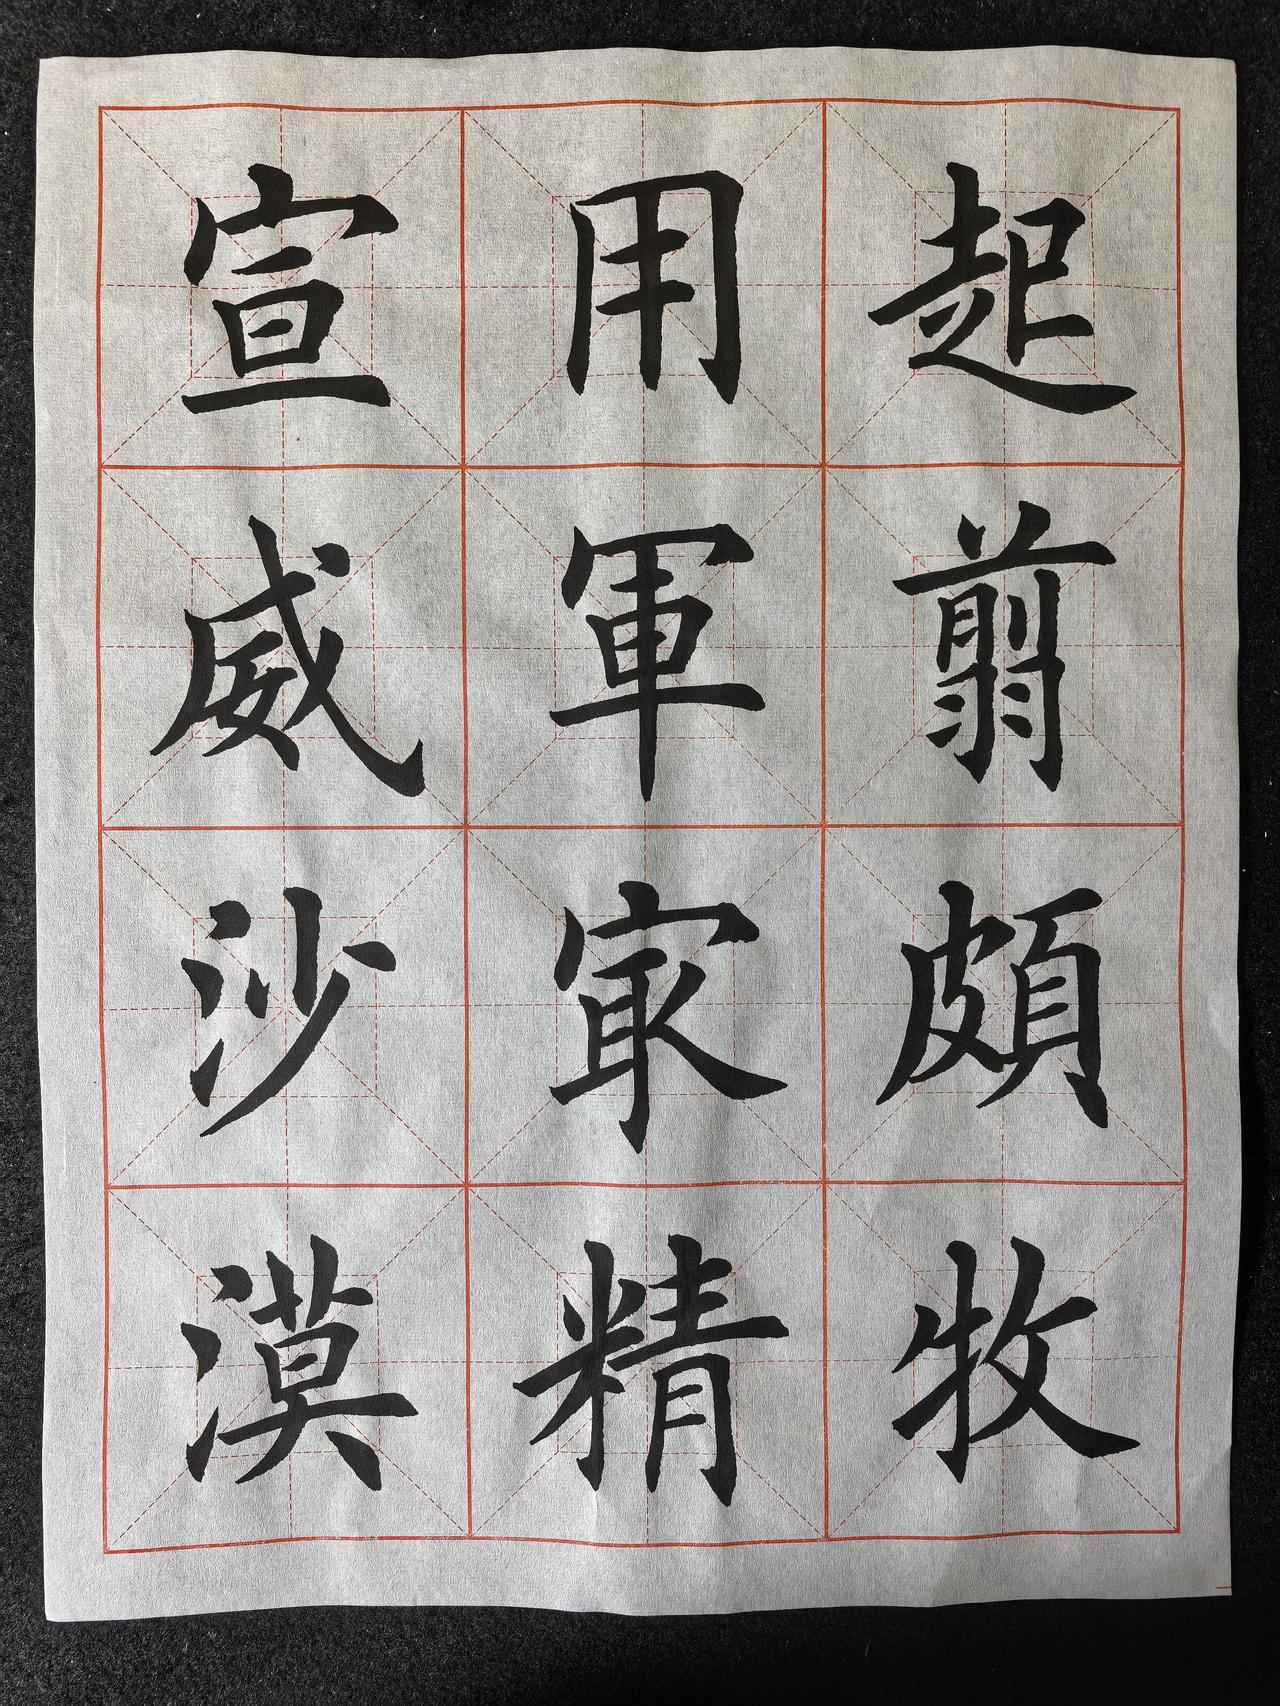 起翦頗牧
用軍冣精
宣威沙漠